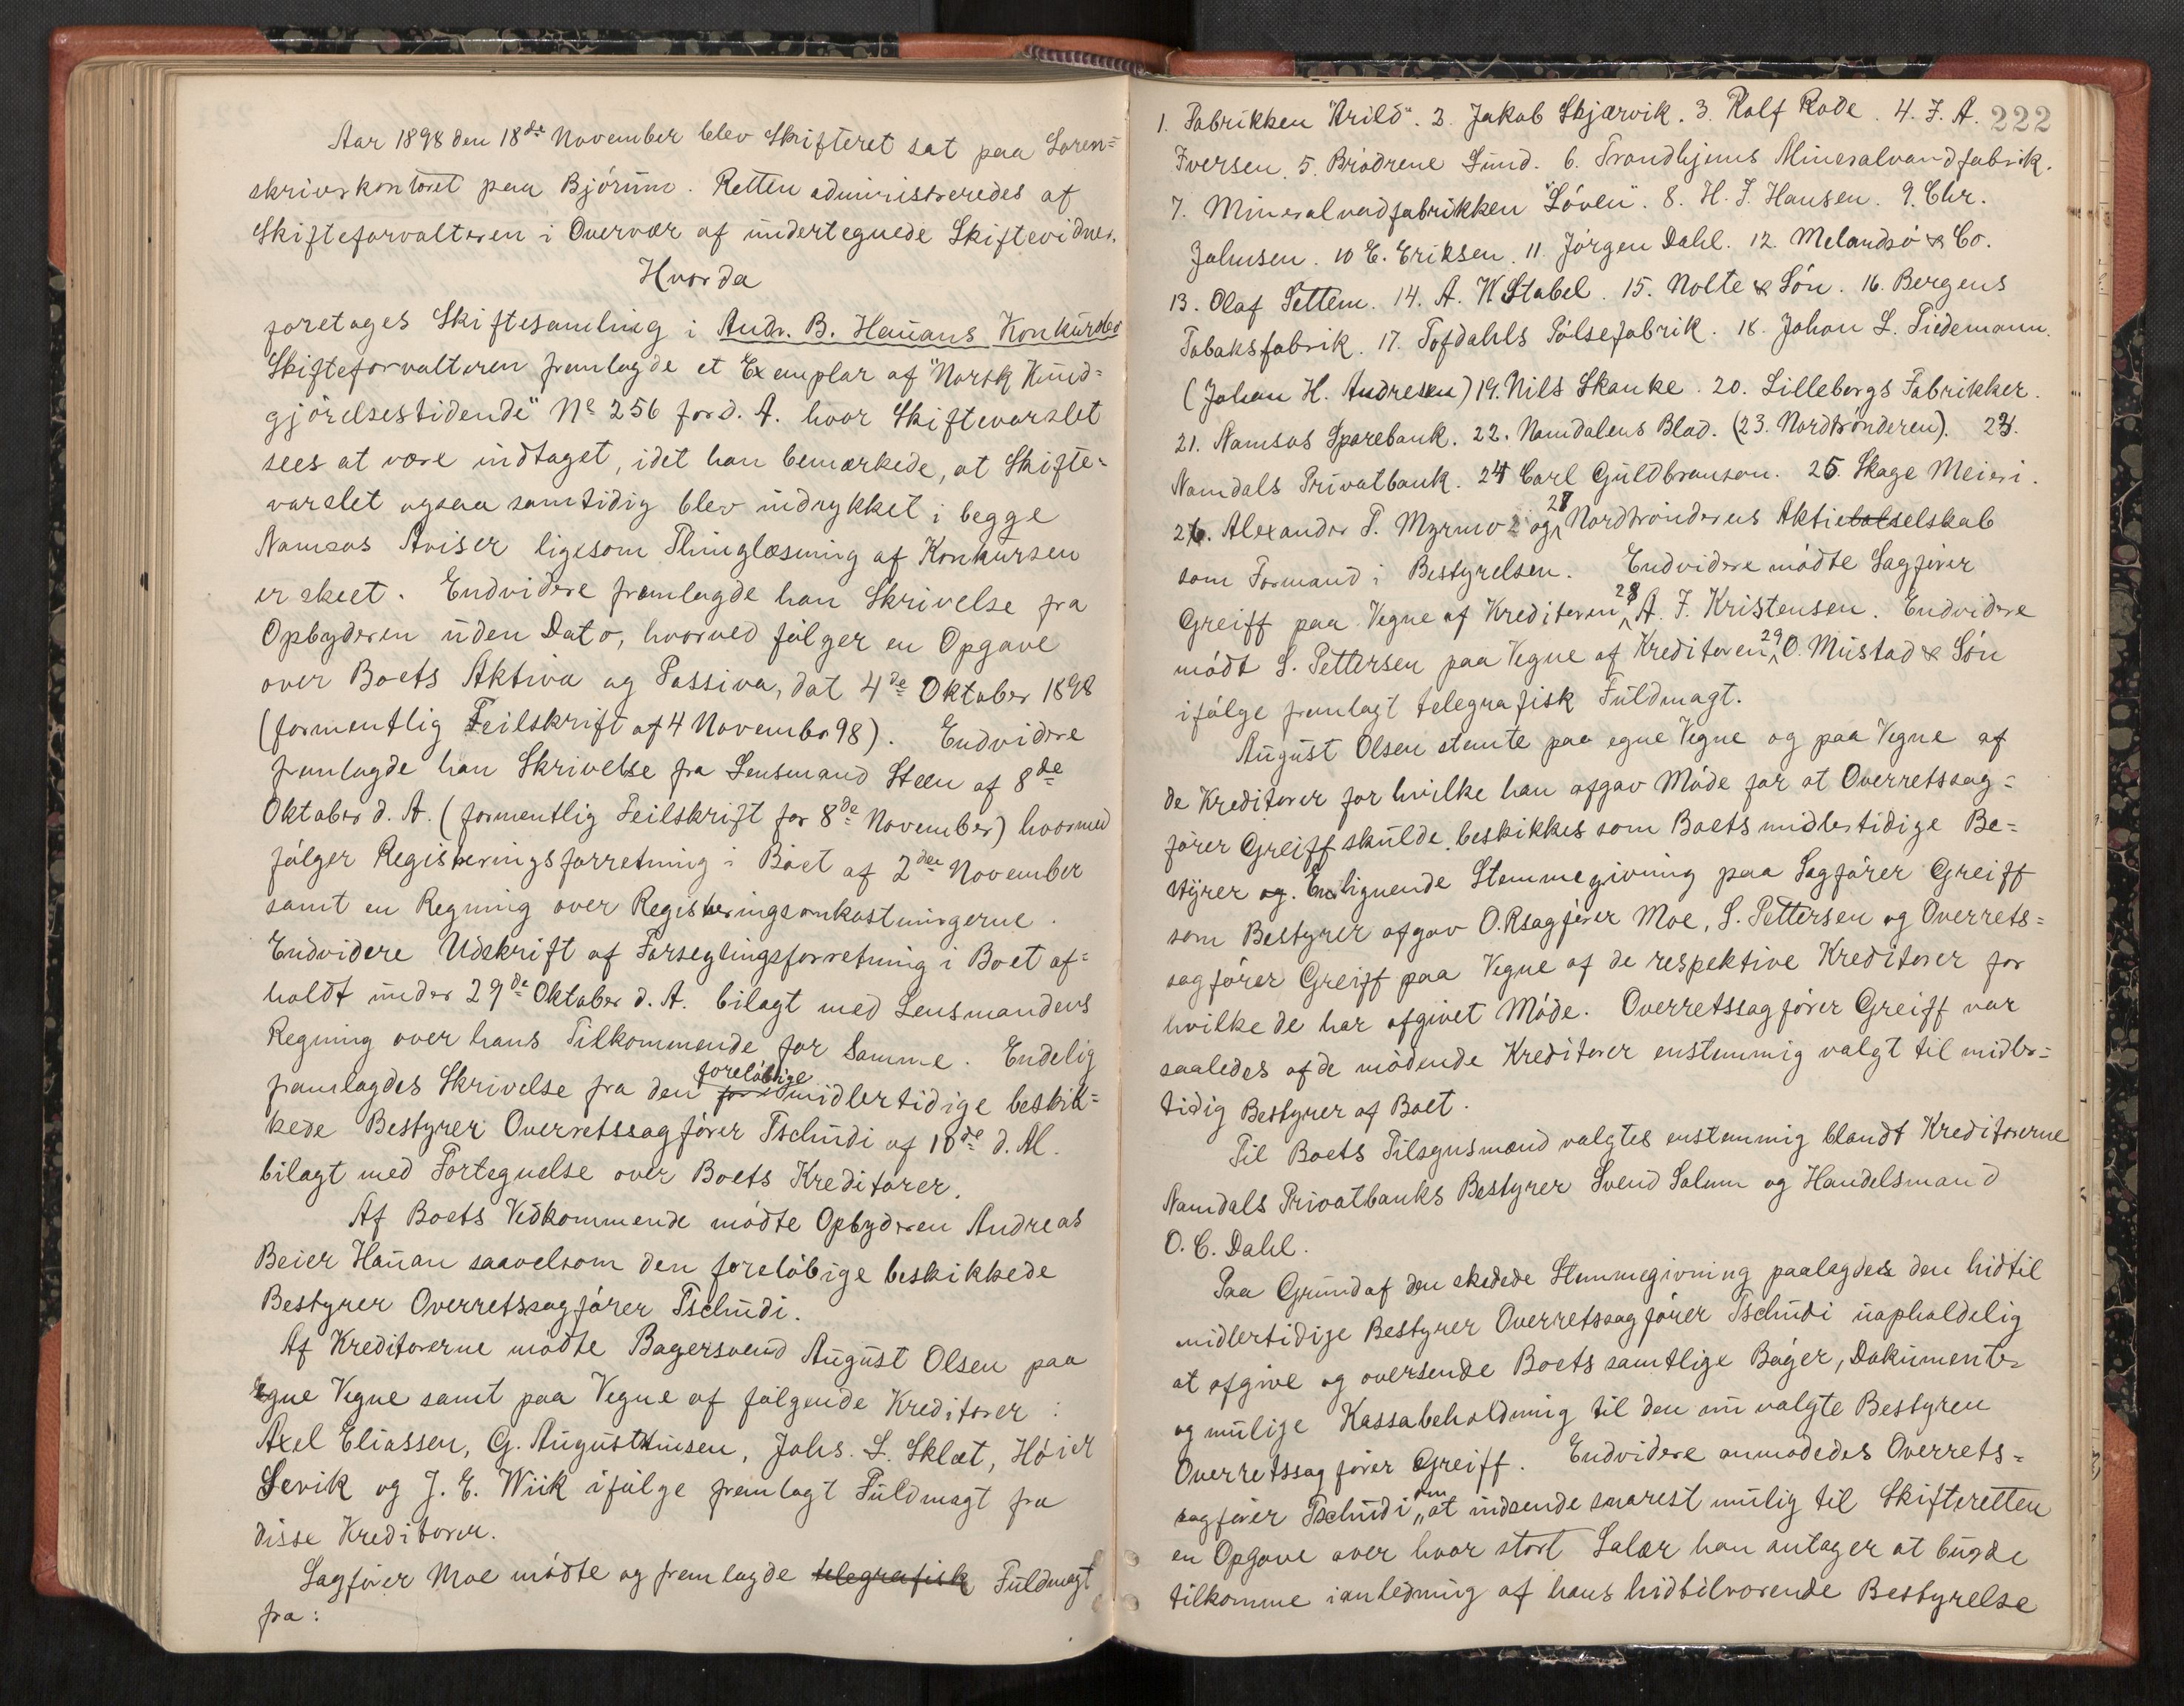 Aar 1898 den 18de November blev Skifteret sat paa Soren=
skriverkontoret paa Bjørum. Retten administreredes af
Skifteforvalteren i Overvær af undertegnede Skiftevidner.
Hvorda
foretoges Skiftesamling i Andr. B. Hauans Konkursbo
Skifteforvalteren fremlagde et Exemplar af "Norsk Kund=
gjørelsestidende" No 256 for d. A. hvor Skiftevarslet
sees at være indtaget, idet han bemærkede, at Skifte=
varslet ogsaa samtidig blev indrykket i begge
Namsos Aviser ligesom Thinglæsning af Konkursen
er skeet. Endvidere fremlagde han Skrivelse fra
Opbyderen uden Dato, hvorved følger en Opgave
over Boets Aktiva og Passiva, dat 4de Oktober 1898
(formentlig Feilskrift af 4 November 98). Endvidere
fremlagde han Skrivelse fra Lensmand Steen af 8de
Oktober d. A. (formentlig Feilskrift for 8de November) hvormed
følger Registreringsforretning i Boet af 2den November
samt en Regning over Registreringsomkostningerne.
Endvidere Udskrift af Forseglingsforretning i Boet af=
holdt under 29de Oktober d. A. bilagt med Lensmandens
Regning over hans Tilkommende for Samme. Endelig
foreløbige
fremlagdes Skrivelse fra den midlertidige beskik=
kede Bestyrer Overretssagfører Tschudi af 10de d. M.
bilagt med Fortegnelse over Boets Kreditorer.
Af Boets Vedkommende mødte Opbyderen Andreas
Beier Hauan saavelsom den foreløbige beskikkede
Bestyrer Overretssagfører Tschudi.
Af Kreditorerne mødte Bagersvend August Olsen paa
egne Vegne samt paa Vegne af følgende Kreditorer:
Axel Eliassen, G. Augustinsen, Johs. L. Sklæt, Høier
Levik og J. E. Wiik ifølge fremlagt Fuldmagt fra
disse Kreditorer.
Sagfører Moe mødte og fremlagde telegrafisk Fuldmagt
fra:
222
1. Fabrikken "Arild". 2. Jakob Skjærvik. 3. Rolf Rode. 4. J. A.
Iversen. 5. Brødrene Lund. 6. Trondhjems Mineralvandfabrik.
7. Mineralvadfabrikken "Løven". 8. H. J. Hansen. 9. Chr.
Johnsen. 10 E. Eriksen. 11. Jørgen Dahl. 12. Melandsø & Co.
13. Olaf Settem. 14. A. W Stabel. 15. Nolte & Søn. 16. Bergens
Tobaksfabrik. 17. Tofdahls Pølsefabrik. 18. Johan L. Tiedemann.
(Johan H. Andresen) 19. Nils Skanke. 20. Lilleborgs Fabrikker.
21. Namsos Sparebank. 22. Namdalens Blad. (23. Nordtrønderen). 23.
Namdals Privatbank. 24 Carl Guldbranson. 25. Skage Meieri.
26. Alexander P. Myrmo og 27 Nordtrønderens Aktieselskab
som Formand i Bestyrelsen. Endvidere mødte Sagfører
Greiff paa Vegne af Kreditoren 28 A. F. Kristensen. Endvidere
mødt S. Pettersen paa Vegne af Kreditoren 29 O. Mustad & Søn
ifølge fremlagt telegrafisk Fuldmagt.
August Olsen stemte paa egne Vegne og paa Vegne af
de Kreditorer for hvilke han afgav Møde for at Overretssag=
fører Greiff skulde beskikkes som Boets midlertidige Be=
styrer og. En lignende Stemmegivning paa Sagfører Greiff
som Bestyrer afgav O.Rsagfører Moe, S. Pettersen og Overrets=
sagfører Greiff paa Vegne af de respektive Kreditorer for
hvilke de har afgivet Møde. Overretssagfører Greiff var
saaledes af de mødende Kreditorer enstemmig valgt til midler=
tidig Bestyrer af Boet.
Til Boets Tilsynsmænd valgtes enstemmig blandt Kreditorerne
Namdals Privatbanks Bestyrer Svend Salum og Handelsmand
O. C. Dahl.
Paa Grund af den skedede Stemmegivning paalagdes den hidtil
midlertidige Bestyrer Overretssagfører Tschudi uopholdelig
at afgive og oversende Boets samtlige Bøger, Dokumenter
og mulige Kassabeholdning til den nu valgte Bestyrer
Overretssagfører Greiff. Endvidere anmodedes Overrets=
sagfører Tschudi om at indsende snarest mulig til Skifteretten
en Opgave over hvor stort Salær han antager at burde
tilkomme i anledning af hans hidtilværende Bestyrelse